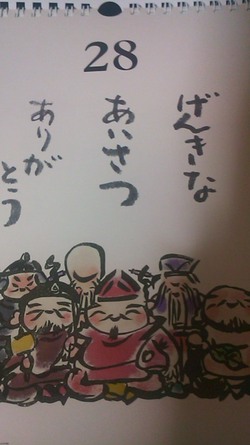 28
げんきな
あいさつ
ありがとう